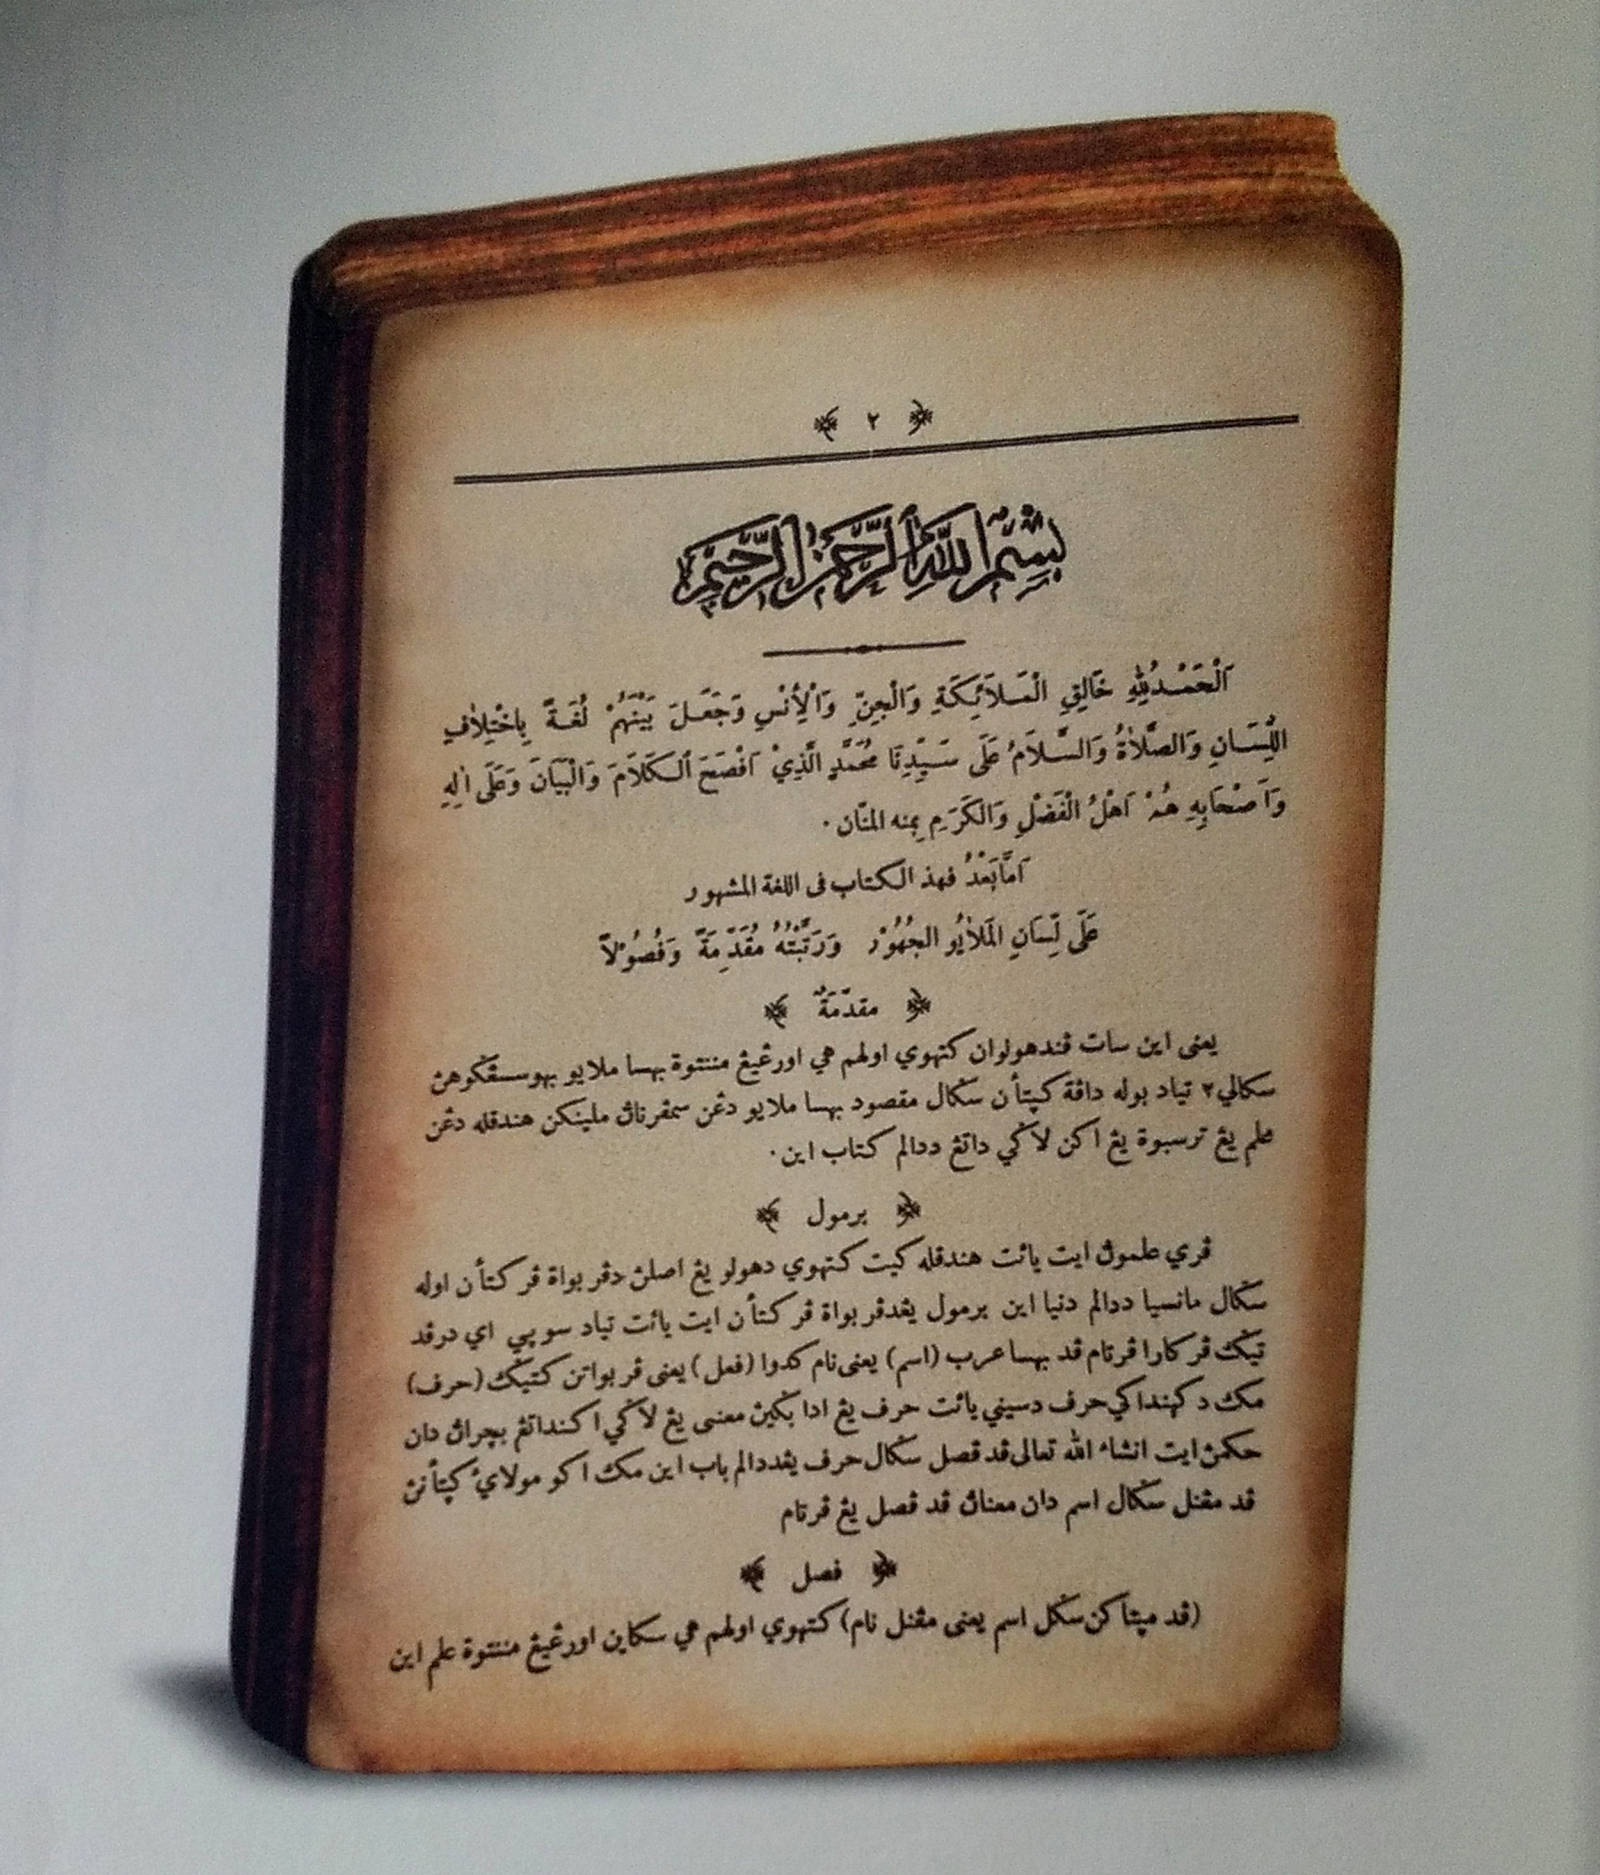 ﴿ ٢ ﴾
بِسْمِ اللهِ الرَّحْمٰنِ الرَّحِيْمِ
اَلْحَمْدُ لِلّٰهِ خَالِقِ الْمَلَائِكَةِ وَالْجِنِّ وَالْأِنْسِ وَجَعَلَ بَيْنَهُمْ لُغَةً بِاخْتِلَافِ
اللِّسَانِ وَالصَّلَاةُ وَالسَّلَامُ عَلَى سَيِّدِنَا مُحَمَّدٍ الَّذِيْ اَفْصَحَ الْكَلَامَ وَالْبَيَانَ وَعَلَى اٰلِهِ
وَاَصْحَابِهِ هُمْ اَهْلُ الْفَضْلِ وَالْكَرَمِ بمنه المنّان .
اَمَّا بَعْدُ فهذ الكتاب فى اللغة المشهور
عَلَى لِسَانِ الْمَلَايُو الجُهُوْر وَرَتَّبْتُهُ مُقَدِّمَةً وَفُصُوْلًا
﴿ مقدّمَةٌ ﴾
يعنى اين سات ڤندهولوان كتهوي اولهم هي اورڠيڠ منتوة بهسا ملايو بهوسسڠݢوهڽ
سكالي٢ تياد بوله داڤة كيتأن سݢال مقصود بهسا ملايو دڠن سمڤرناڽ ملينكن هندقله دڠن
علم يڠ ترسبوة يڠ اكن لاݢي داتڠ ددالم كتاب اين .
﴿ برمول ﴾
ڤري علموڽ ايت يائت هندقله كيت كتهوي دهولو يڠ اصلڽ دڤربواة ڤركتأن اوله
سݢال مانسيا ددالم دنيا اين برمول يڠدڤربواة ڤركتأن ايت يائت تياد سوڽي اي درڤد
تيݢ ڤركارا ڤرتام ڤد بهسا عرب (اسم) يعنى نام كدوا (فعل) يعنى ڤربواتن كتيݢ (حرف)
مك دكهنداكي حرف دسيني يائت حرف يڠ ادا بݢيڽ معنى يڠ لاݢي اكنداتڠ بچراڽ دان
حكمڽ ايت انشاء الله تعالى ڤد ڤصل سݢال حرف يڠددالم باب اين مك اكو مولاي كيتأنڽ
ڤد مڠنل سݢال اسم دان معناڽ ڤد ڤصل يڠ ڤرتام
﴿ فصل ﴾
(ڤد ميتاكن سݢل اسم يعنى مڠنل نام) كتهوي اولهم هي سكاين اورڠيڠ منتوة علم اين